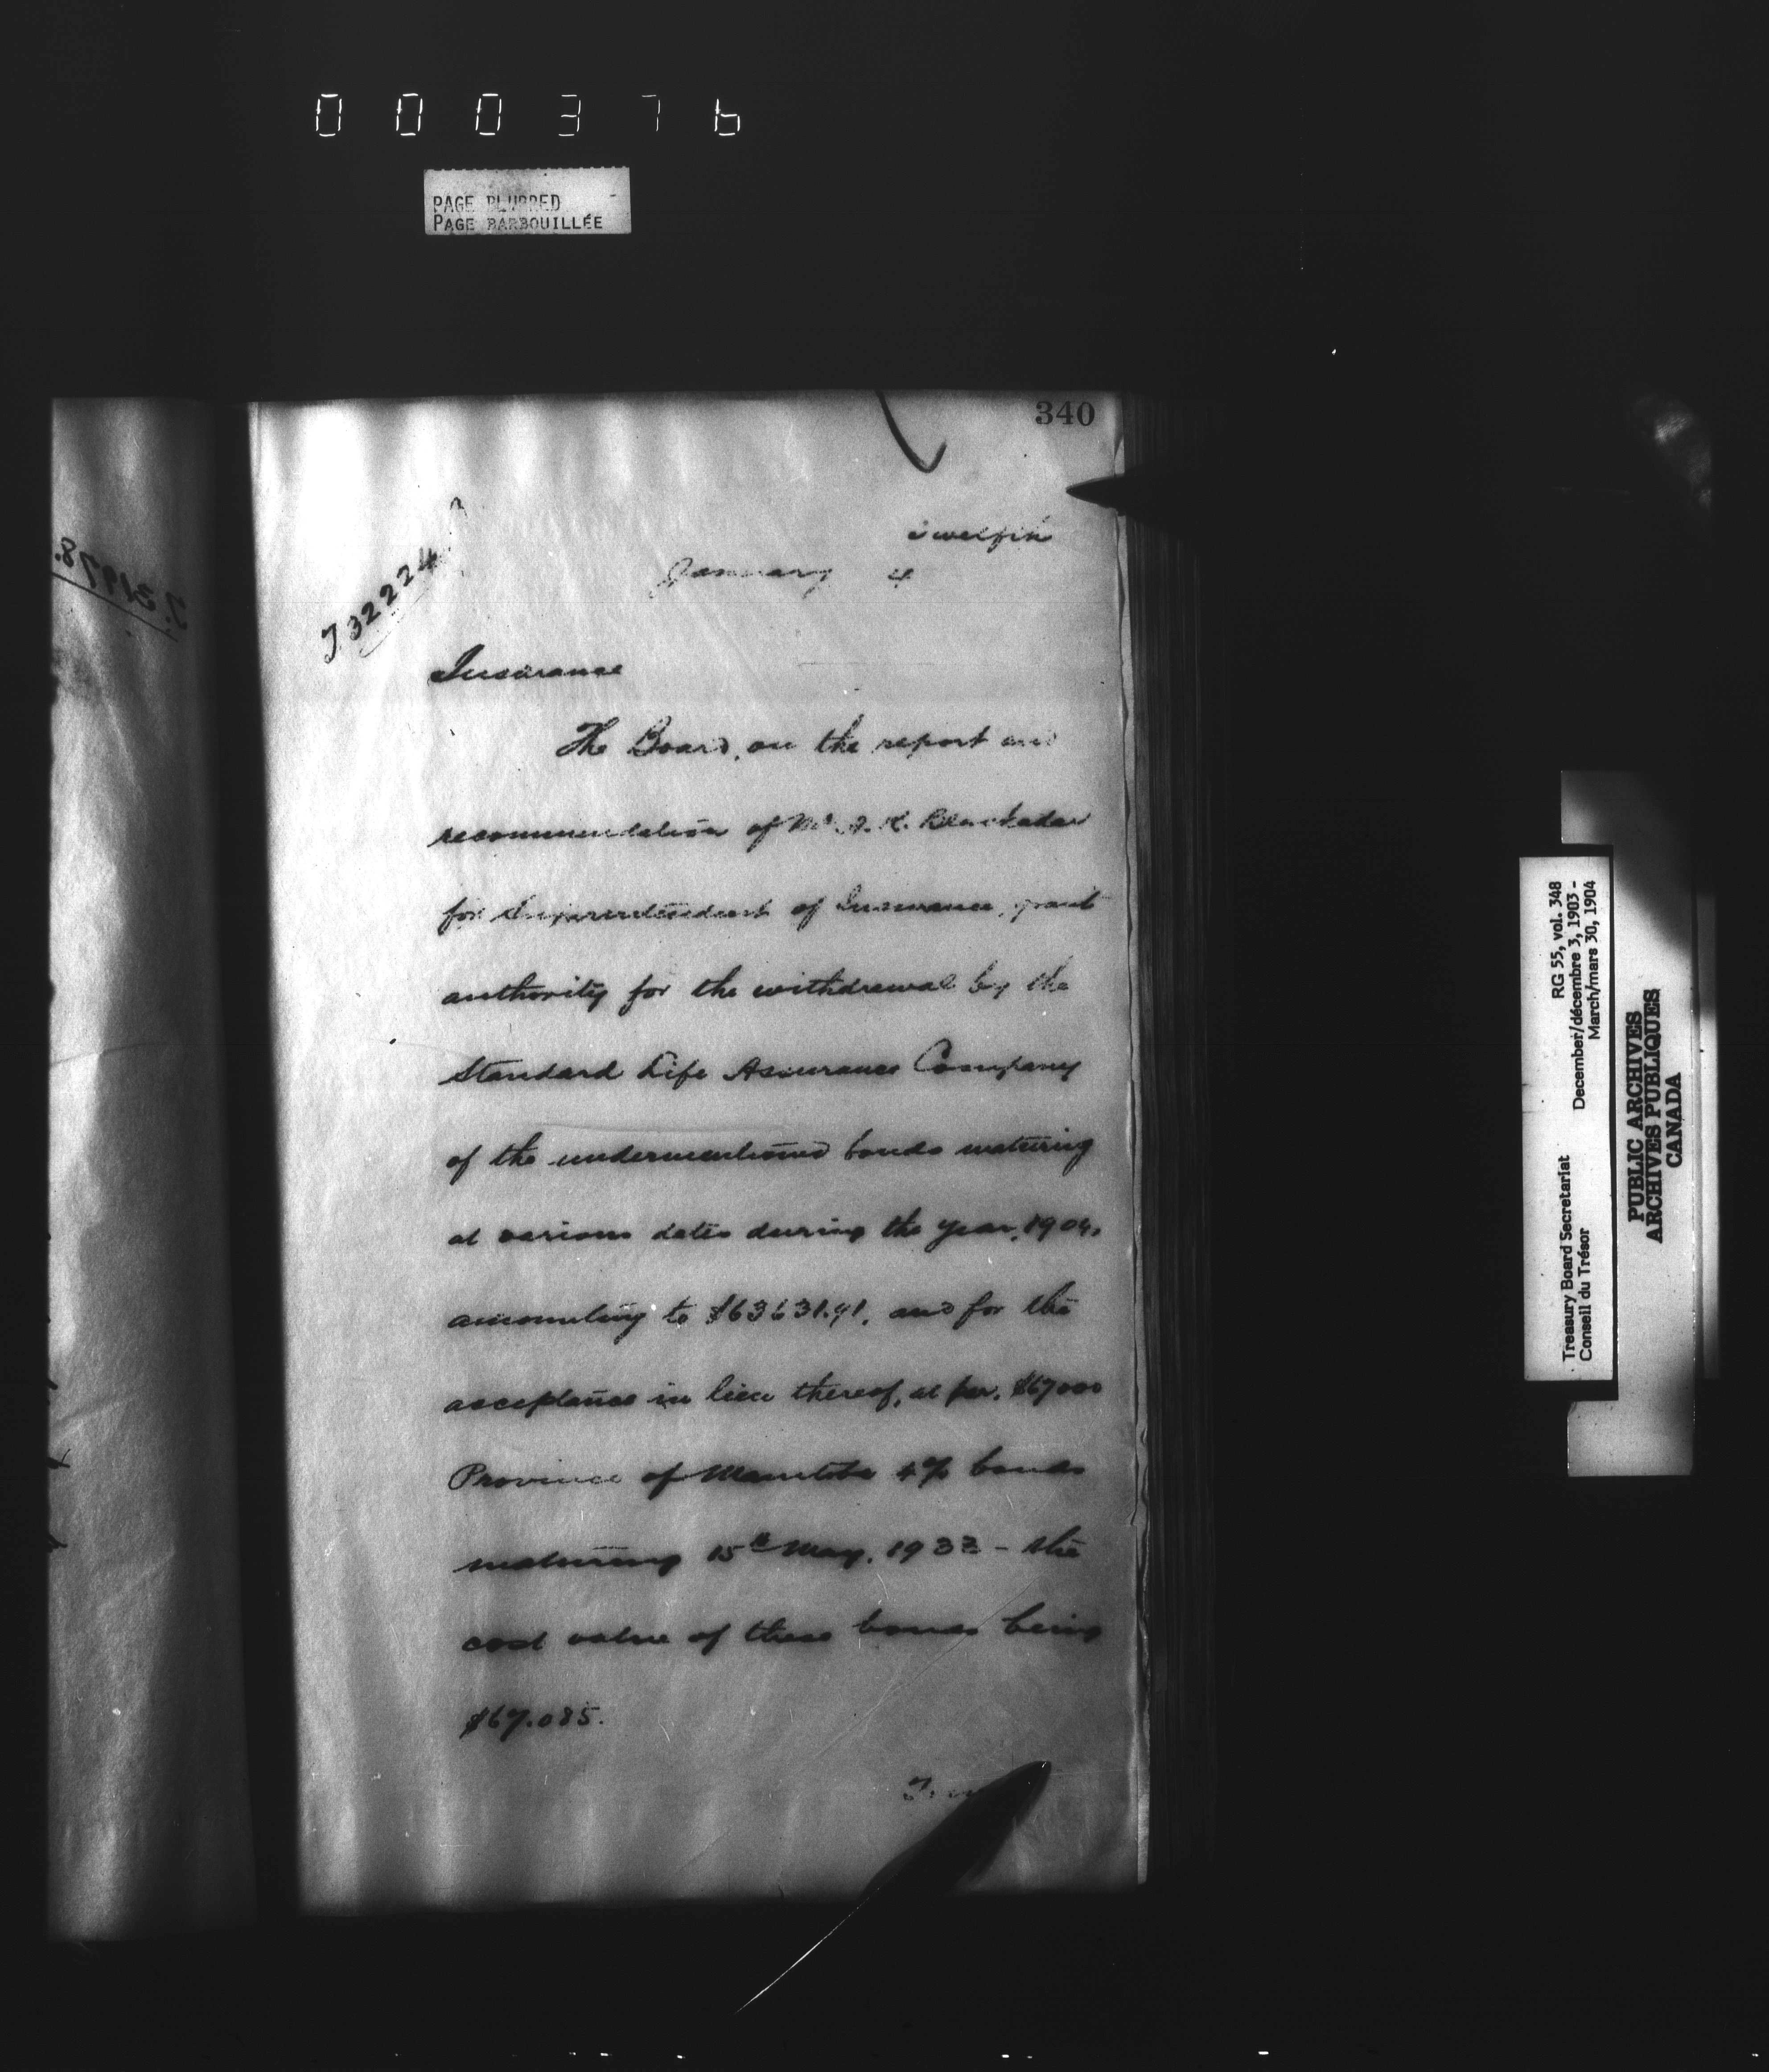 000376
PAGE BLURRED
PAGE BARBOUILLÉE
340
J. 31978.
J 32224
Twelfth
January 4
Insurance
The Board, on the report and
recommendation of Mr. A. K. Blackadar
for Superintendent of Insurance, grant
authority for the withdrawal by the
Standard Life Assurance Company
of the undermentioned bonds maturing
at various dates during the year, 1904,
amounting to $63631.91, and for the
acceptance in lieu thereof, at par, $67000
Province of Manitoba 4% bonds
maturing 15th May, 1933 - the
cost value of these bonds being
$67.085.
RG 55, vol. 348
December/décembre 3, 1903 -
March/mars 30, 1904
Treasury Board Secretariat
Conseil du Trésor
PUBLIC ARCHIVES
ARCHIVES PUBLIQUES
CANADA